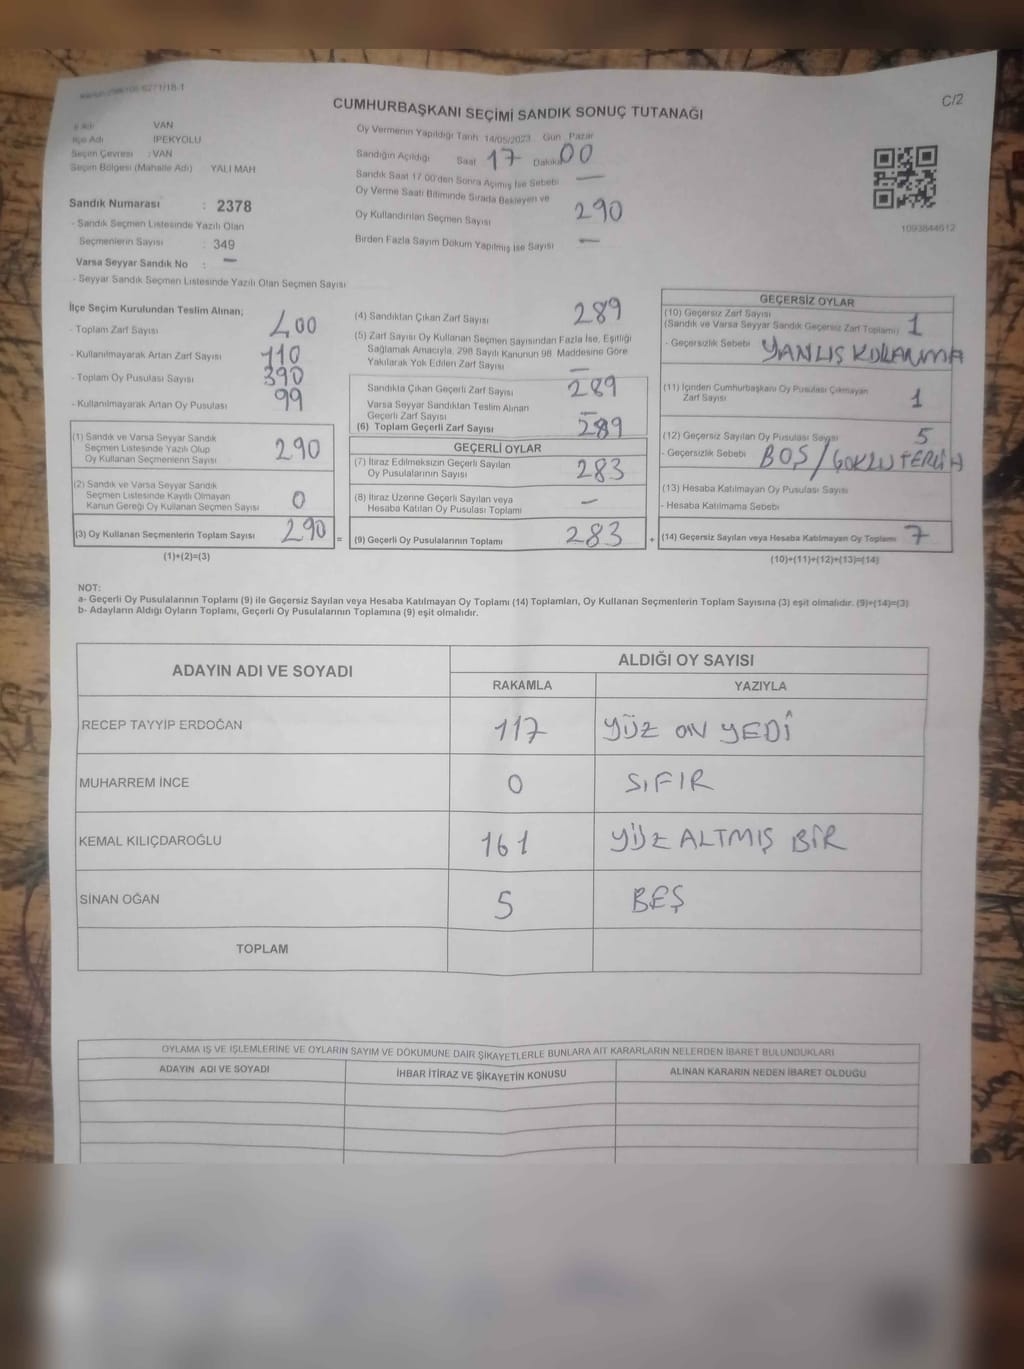 CUMHURBAŞKANI SEÇİMİ SANDIK SONUÇ TUTANAĞI
C/2
VAN
İlçe Adı İPEKYOLU
Seçim Çevresi : VAN
Seçim Bölgesi (Mahalle Adı) YALI MAH
Sandık Numarası : 2378
- Sandık Seçmen Listesinde Yazılı Olan
Seçmenlerin Sayısı : 349
Varsa Seyyar Sandık No : —
- Seyyar Sandık Seçmen Listesinde Yazılı Olan Seçmen Sayısı
Oy Vermenin Yapıldığı Tarih 14/05/2023 Gün Pazar
Sandığın Açıldığı Saat 17 Dakika 00
Sandık Saat 17 00'den Sonra Açımış İse Sebebi —
Oy Verme Saati Bitiminde Sırada Bekleyen ve
Oy Kullandırılan Seçmen Sayısı 290
Birden Fazla Sayım Döküm Yapılmış ise Sayısı —
1093844612
İlçe Seçim Kurulundan Teslim Alınan;
- Toplam Zarf Sayısı 400
- Kullanılmayarak Artan Zarf Sayısı 110
- Toplam Oy Pusulası Sayısı 390
- Kullanılmayarak Artan Oy Pusulası 99
(1) Sandık ve Varsa Seyyar Sandık
Seçmen Listesinde Yazılı Olup
Oy Kullanan Seçmenlerin Sayısı 290
(2) Sandık ve Varsa Seyyar Sandık
Seçmen Listesinde Kayıtlı Olmayan
Kanun Gereği Oy Kullanan Seçmen Sayısı 0
(3) Oy Kullanan Seçmenlerin Toplam Sayısı 290 =
(1)+(2)=(3)
(4) Sandıktan Çıkan Zarf Sayısı 289
(5) Zarf Sayısı Oy Kullanan Seçmen Sayısından Fazla İse, Eşitliği
Sağlamak Amacıyla, 298 Sayılı Kanunun 98. Maddesine Göre
Yakılarak Yok Edilen Zarf Sayısı —
Sandıkta Çıkan Geçerli Zarf Sayısı 289
Varsa Seyyar Sandıktan Teslim Alınan
Geçerli Zarf Sayısı —
(6) Toplam Geçerli Zarf Sayısı 289
GEÇERLİ OYLAR
(7) İtiraz Edilmeksizin Geçerli Sayılan
Oy Pusulalarının Sayısı 283
(8) İtiraz Üzerine Geçerli Sayılan veya
Hesaba Katılan Oy Pusulası Toplamı —
(9) Geçerli Oy Pusulalarının Toplamı 283 +
GEÇERSİZ OYLAR
(10) Geçersiz Zarf Sayısı
(Sandık ve Varsa Seyyar Sandık Geçersiz Zarf Toplamı) 1
- Geçersizlik Sebebi YANLIŞ KULLANMA
(11) İçinden Cumhurbaşkanı Oy Pusulası Çıkmayan
Zarf Sayısı 1
(12) Geçersiz Sayılan Oy Pusulası Sayısı 5
- Geçersizlik Sebebi BOŞ /
(13) Hesaba Katılmayan Oy Pusulası Sayısı
- Hesaba Katılmama Sebebi
(14) Geçersiz Sayılan veya Hesaba Katılmayan Oy Toplamı 7
(10)+(11)+(12)+(13)=(14)
NOT:
a- Geçerli Oy Pusulalarının Toplamı (9) ile Geçersiz Sayılan veya Hesaba Katılmayan Oy Toplamı (14) Toplamları, Oy Kullanan Seçmenlerin Toplam Sayısına (3) eşit olmalıdır. (9)+(14)=(3)
b- Adayların Aldığı Oyların Toplamı, Geçerli Oy Pusulalarının Toplamına (9) eşit olmalıdır.
ADAYIN ADI VE SOYADI
ALDIĞI OY SAYISI
RAKAMLA YAZIYLA
RECEP TAYYİP ERDOĞAN 117 YÜZ ON YEDİ
MUHARREM İNCE 0 SIFIR
KEMAL KILIÇDAROĞLU 161 YÜZ ALTMIŞ BİR
SİNAN OĞAN 5 BEŞ
TOPLAM
OYLAMA İŞ VE İŞLEMLERİNE VE OYLARIN SAYIM VE DÖKÜMÜNE DAİR ŞİKAYETLERLE BUNLARA AİT KARARLARIN NELERDEN İBARET BULUNDUKLARI
ADAYIN ADI VE SOYADI
İHBAR İTİRAZ VE ŞİKAYETİN KONUSU
ALINAN KARARIN NEDEN İBARET OLDUĞU